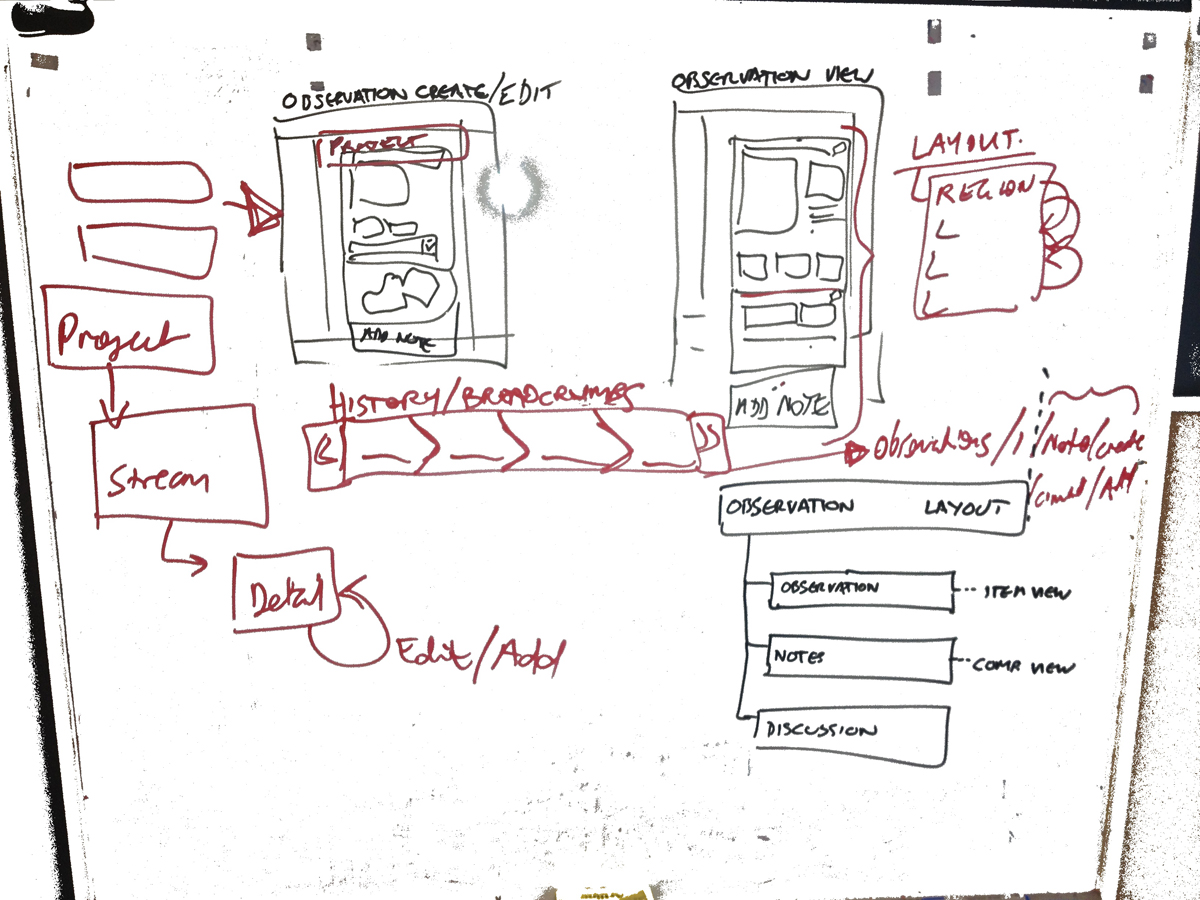 OBSERVATION CREATE/EDIT
PROJECT
ADD NOTE
OBSERVATION VIEW
ADD NOTE
LAYOUT.
REGION
Project
Stream
Detail
Edit/Add
HISTORY/BREADCRUMBS
JS
Observations/1/Note/create
/Add
OBSERVATION LAYOUT
OBSERVATION
ITEM VIEW
NOTES
COMP VIEW
DISCUSSION